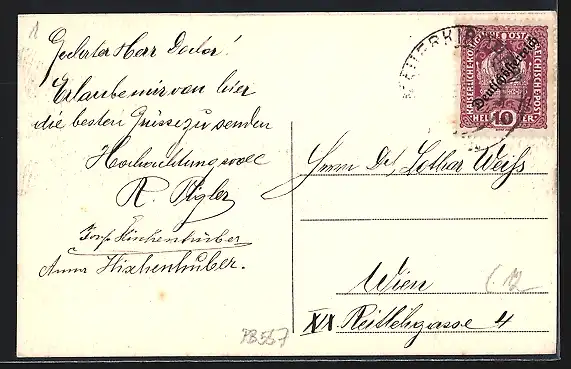 1
Geehrter Herr Doctor!
Erlaube mir von hier
die besten Grüsse zu senden
Hochachtungsvoll
R. Pigler
Josef Hichenhuber
Anna Hichenhuber.
78557
KAISERLICHE KÖNIGLICHE ÖSTERREICHISCHE POST
Deutschösterreich
10
HELLER
Herrn Dr. Lothar Weiss
Wien
XIX. Reithlegasse 4